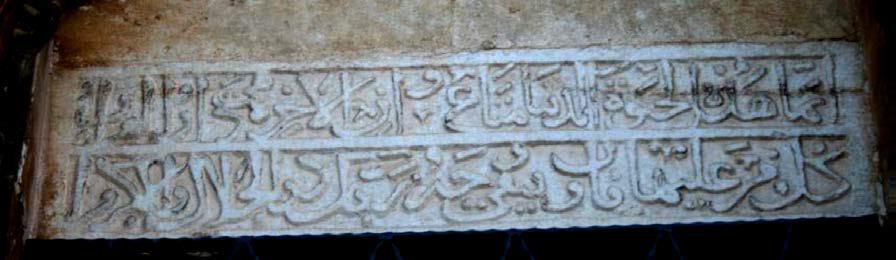 انما هذه الحيوة الدنيا متاع وان الاخرة هي دار القرار
كل من عليها فان ويبقى وجه ربك ذو الجلال والاكرام